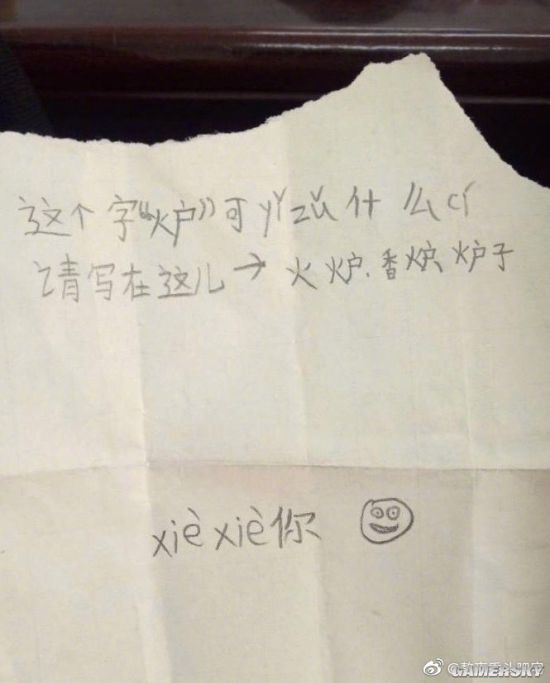 这个字“炉”可yǐzǔ什么cí
请写在这儿→火炉、香炉、炉子
xièxiè你
GAMERSKY